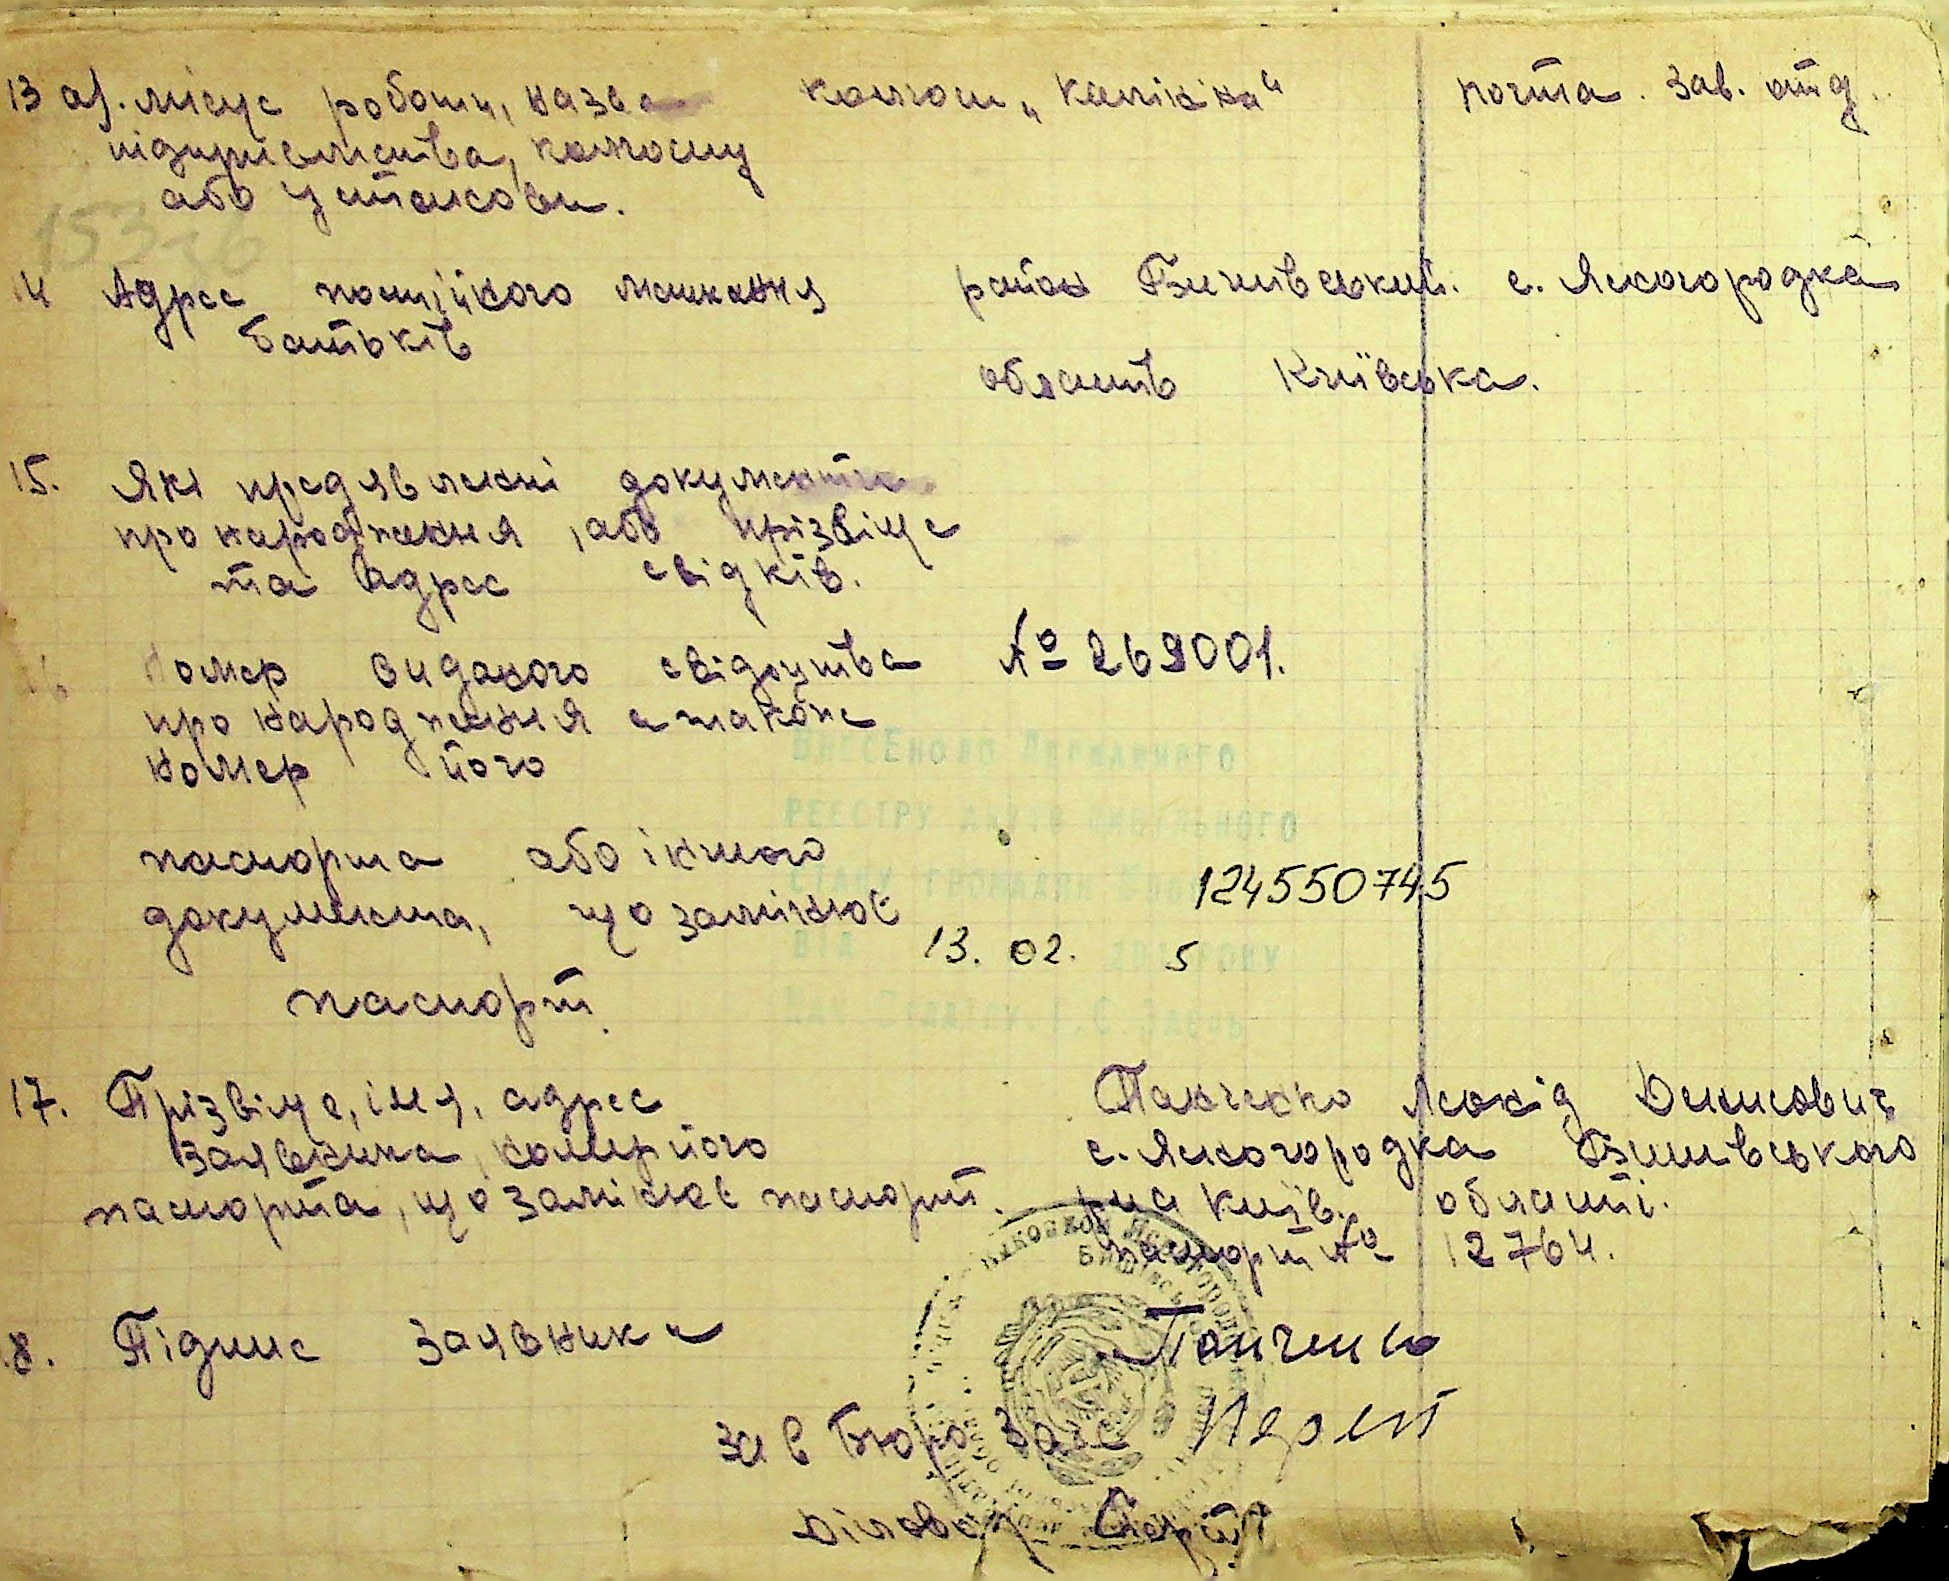 13 а). місце роботи, назва колгосп „Калініна" почта. Зав. отд.
підприємства, колгоспу
або установи.
14 Адрес постійного мешкання район Бишівський. с. Ясногородка
батьків
область Київська.
15. Які предявленні документи
про народження, або прізвіще
та адрес свідків.
16 Номер виданого свідоцтва № 269001.
про народження а також
номер його
ВНЕСЕНО ДО ДЕРЖАВНОГО
РЕЄСТРУ АКТІВ ЦИВІЛЬНОГО
паспорта або іншого
СТАНУ ГРОМАДЯН 124550745
документа, що замінює
ВІД 13. 02. 5 РОКУ
паспорт.
17. Прізвіще, імя, адрес Панченко Леонід Денисович
заявника, номер його с. Ясногородка Бишівського
паспорта, що замінює паспорт. р-на Київ. області.
паспорт № 12764.
18. Підпис заявника Панченко
Зав Бюро Загс
Діловод